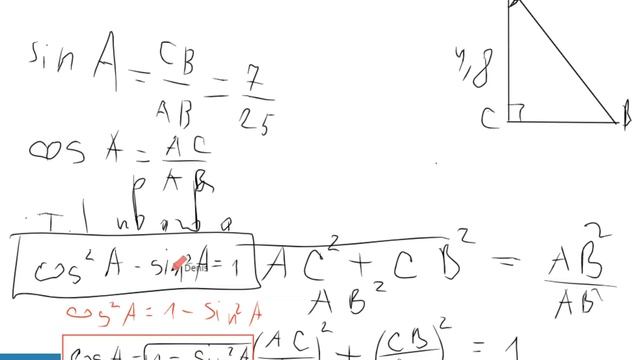 sin A = CB / AB = 7 / 25
4,8
C
B
cos A = AC / AB
cos² A - sin² A = 1
Denis
AC² + CB² = AB² / AB²
AB²
cos² A = 1 - sin² A
(AC)² + (CB)² = 1